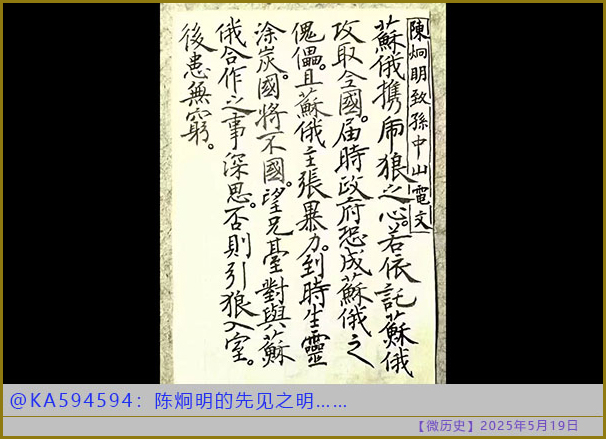 陳炯明致孫中山電文
蘇俄携虎狼之心。若依託蘇俄
攻取全國。届時政府恐成蘇俄之
傀儡。且蘇俄主張暴力。到時生靈
涂炭。國將不國。望兄臺對與蘇
俄合作之事深思。否則引狼入室。
後患無窮。
@KA594594：陈炯明的先见之明……
【微历史】2025年5月19日